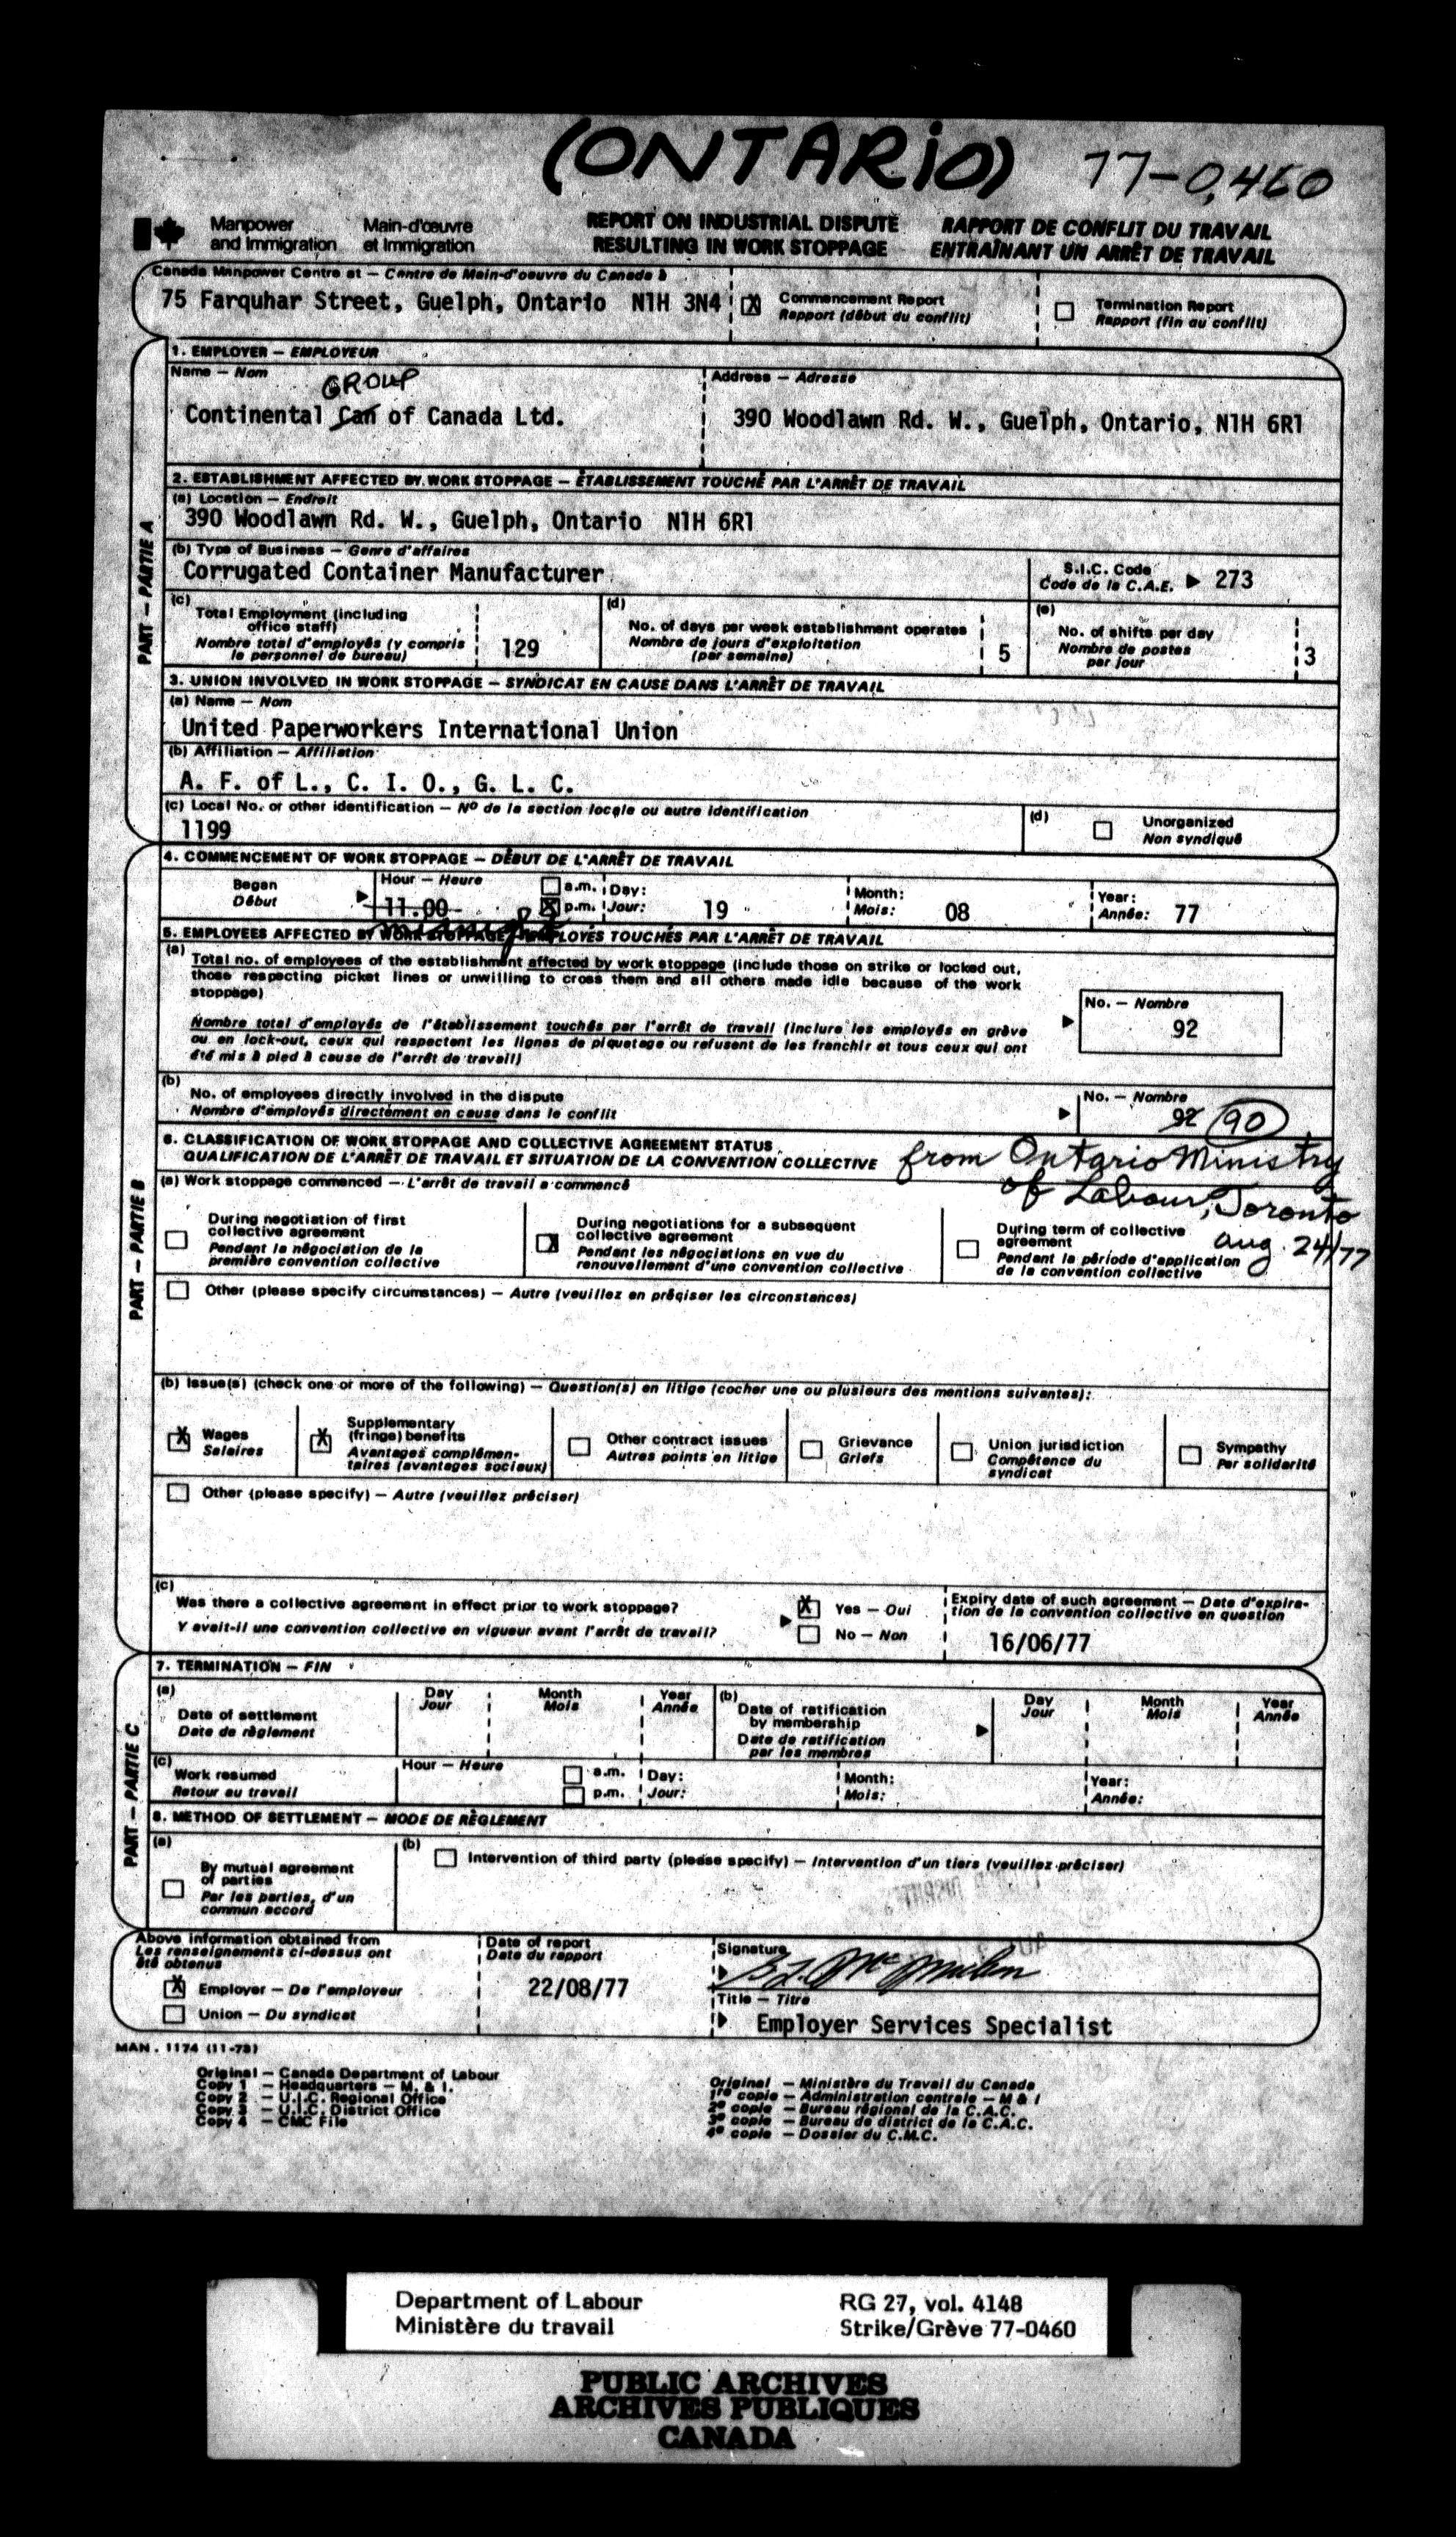 (ONTARIO) 77-0,460
Manpower and Immigration
Main-d'œuvre et Immigration
REPORT ON INDUSTRIAL DISPUTE
RESULTING IN WORK STOPPAGE
RAPPORT DE CONFLIT DU TRAVAIL
ENTRAÎNANT UN ARRÊT DE TRAVAIL
Canada Manpower Centre at — Centre de Main-d'oeuvre du Canada à
75 Farquhar Street, Guelph, Ontario N1H 3N4
X Commencement Report
Rapport (début du conflit)
Termination Report
Rapport (fin au conflit)
PART – PARTIE A
1. EMPLOYER — EMPLOYEUR
Name — Nom
GROUP
Continental Can of Canada Ltd.
Address — Adresse
390 Woodlawn Rd. W., Guelph, Ontario, N1H 6R1
2. ESTABLISHMENT AFFECTED BY WORK STOPPAGE — ÉTABLISSEMENT TOUCHÉ PAR L'ARRÊT DE TRAVAIL
(a) Location — Endroit
390 Woodlawn Rd. W., Guelph, Ontario N1H 6R1
(b) Type of Business — Genre d'affaires
Corrugated Container Manufacturer
S.I.C. Code
Code de la C.A.E. 273
(c)
Total Employment (including
office staff)
Nombre total d'employés (y compris
le personnel de bureau)
129
(d)
No. of days per week establishment operates
Nombre de jours d'exploitation
(par semaine)
5
(e)
No. of shifts per day
Nombre de postes
par jour
3
3. UNION INVOLVED IN WORK STOPPAGE — SYNDICAT EN CAUSE DANS L'ARRÊT DE TRAVAIL
(a) Name — Nom
United Paperworkers International Union
(b) Affiliation — Affiliation
A. F. of L., C. I. O., G. L. C.
(c) Local No. or other identification — Nº de la section locale ou autre identification
1199
(d)
Unorganized
Non syndiqué
PART – PARTIE B
4. COMMENCEMENT OF WORK STOPPAGE — DÉBUT DE L'ARRÊT DE TRAVAIL
Began
Début
Hour — Heure
11.00
a.m.
X p.m.
Day:
Jour: 19
Month:
Mois: 08
Year:
Année: 77
5. EMPLOYEES AFFECTED BY WORK STOPPAGE — EMPLOYÉS TOUCHÉS PAR L'ARRÊT DE TRAVAIL
(a)
Total no. of employees of the establishment affected by work stoppage (include those on strike or locked out,
those respecting picket lines or unwilling to cross them and all others made idle because of the work
stoppage)
Nombre total d'employés de l'établissement touchés par l'arrêt de travail (inclure les employés en grève
ou en lock-out, ceux qui respectent les lignes de piquetage ou refusent de les franchir et tous ceux qui ont
été mis à pied à cause de l'arrêt de travail)
No. — Nombre
92
(b)
No. of employees directly involved in the dispute
Nombre d'employés directement en cause dans le conflit
No. — Nombre
92 90
6. CLASSIFICATION OF WORK STOPPAGE AND COLLECTIVE AGREEMENT STATUS
QUALIFICATION DE L'ARRÊT DE TRAVAIL ET SITUATION DE LA CONVENTION COLLECTIVE
from Ontario Ministry
of Labour, Toronto
Aug. 24/77
(a) Work stoppage commenced — L'arrêt de travail a commencé
During negotiation of first
collective agreement
Pendant la négociation de la
première convention collective
X During negotiations for a subsequent
collective agreement
Pendant les négociations en vue du
renouvellement d'une convention collective
During term of collective
agreement
Pendant la période d'application
de la convention collective
Other (please specify circumstances) — Autre (veuillez en préciser les circonstances)
(b) Issue(s) (check one or more of the following) — Question(s) en litige (cocher une ou plusieurs des mentions suivantes):
X Wages
Salaires
X Supplementary
(fringe) benefits
Avantages complémen-
taires (avantages sociaux)
Other contract issues
Autres points en litige
Grievance
Griefs
Union jurisdiction
Compétence du
syndicat
Sympathy
Par solidarité
Other (please specify) — Autre (veuillez préciser)
(c)
Was there a collective agreement in effect prior to work stoppage?
Y avait-il une convention collective en vigueur avant l'arrêt de travail?
X Yes — Oui
No — Non
Expiry date of such agreement — Date d'expira-
tion de la convention collective en question
16/06/77
PART – PARTIE C
7. TERMINATION — FIN
(a)
Date of settlement
Date de règlement
Day
Jour
Month
Mois
Year
Année
(b)
Date of ratification
by membership
Date de ratification
par les membres
Day
Jour
Month
Mois
Year
Année
(c)
Work resumed
Retour au travail
Hour — Heure
a.m.
p.m.
Day:
Jour:
Month:
Mois:
Year:
Année:
8. METHOD OF SETTLEMENT — MODE DE RÈGLEMENT
(a)
By mutual agreement
of parties
Par les parties, d'un
commun accord
(b)
Intervention of third party (please specify) — Intervention d'un tiers (veuillez préciser)
Above information obtained from
Les renseignements ci-dessus ont
été obtenus
X Employer — De l'employeur
Union — Du syndicat
Date of report
Date du rapport
22/08/77
Signature
Title — Titre
Employer Services Specialist
MAN. 1174 (11-73)
Original — Canada Department of Labour
Copy 1 — Headquarters — M. & I.
Copy 2 — U.I.C. Regional Office
Copy 3 — U.I.C. District Office
Copy 4 — CMC File
Original — Ministère du Travail du Canada
1re copie — Administration centrale — M & I
2e copie — Bureau régional de la C.A.C.
3e copie — Bureau de district de la C.A.C.
4e copie — Dossier du C.M.C.
Department of Labour
Ministère du travail
RG 27, vol. 4148
Strike/Grève 77-0460
PUBLIC ARCHIVES
ARCHIVES PUBLIQUES
CANADA